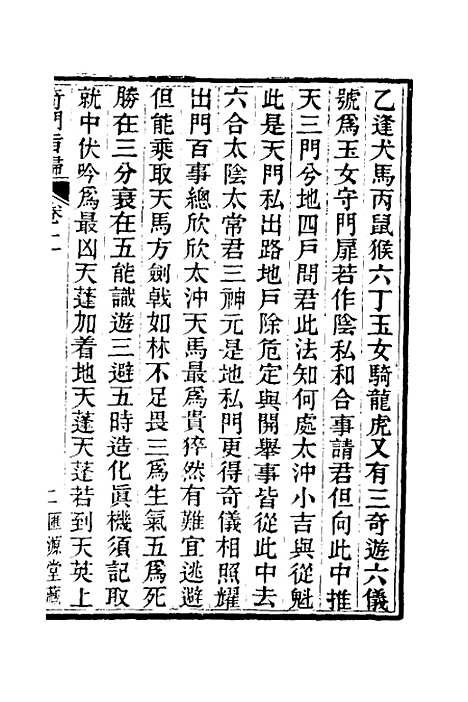 乙逢犬馬丙鼠猴六丁玉女騎龍虎又有三奇遊六儀
號爲玉女守門扉若作陰私和合事請君但向此中推
天三門兮地四戶問君此法知何處太沖小吉與從魁
此是天門私出路地戶除危定與開舉事皆從此中去
六合太陰太常君三神元是地私門更得奇儀相照耀
出門百事總欣欣太沖天馬最爲貴猝然有難宜逃避
但能乘取天馬方劍戟如林不足畏三爲生氣五爲死
勝在三分衰在五能識遊三避五時造化眞機須記取
就中伏吟爲最凶天蓬加着地天蓬天蓬若到天英上
奇門旨歸 卷二 二 匯源堂藏